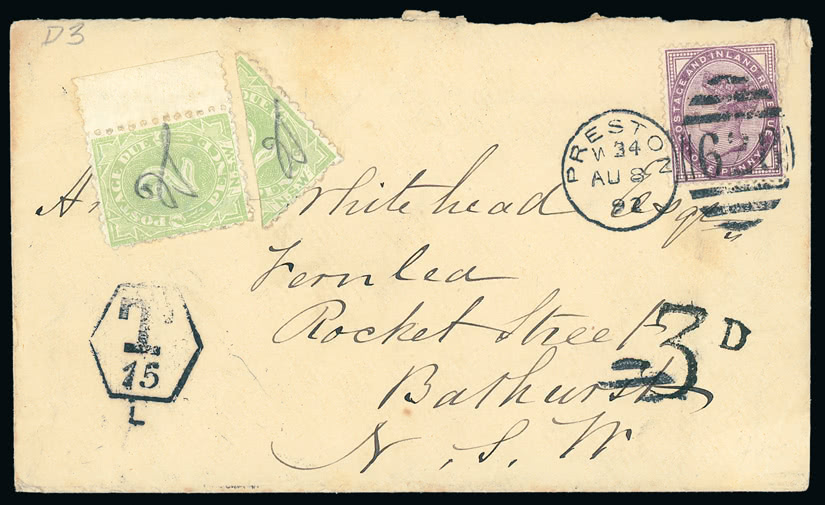 D3
POSTAGE DUE
PENCE
N.S.W.
2
DUE
2
POSTAGE AND INLAND REVENUE
ONE PENNY
PRESTON
AU 8
92
Whitehead Esqr
Fernlea
Rocket Street
Bathurst
N. S. W
T
15
L
3 D